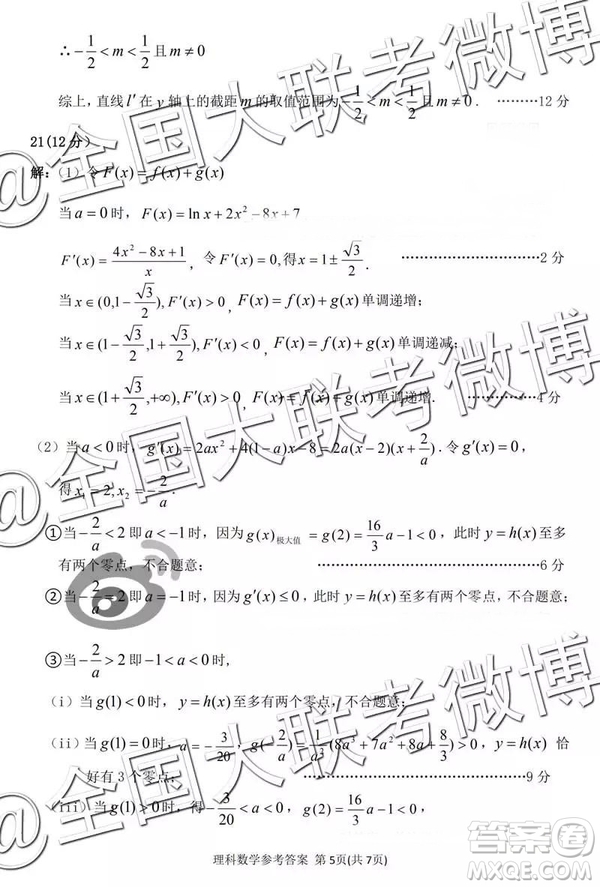 ∴ -1/2 < m < 1/2 且 m ≠ 0
综上,直线 l′ 在 y 轴上的截距 m 的取值范围为 -1/2 < m < 1/2 且 m ≠ 0 . ………12 分
21(12 分)
解:(1) 令 F(x) = f(x) + g(x)
当 a = 0 时, F(x) = ln x + 2x² - 8x + 7
F′(x) = (4x² - 8x + 1)/x , 令 F′(x) = 0, 得 x = 1 ± √3/2 . ………………2 分
当 x ∈ (0, 1 - √3/2), F′(x) > 0 , F(x) = f(x) + g(x) 单调递增;
当 x ∈ (1 - √3/2, 1 + √3/2), F′(x) < 0 , F(x) = f(x) + g(x) 单调递减;
当 x ∈ (1 + √3/2, +∞), F′(x) > 0 , F(x) = f(x) + g(x) 单调递增. …………4 分
(2) 当 a < 0 时, g′(x) = 2ax² + 4(1 - a)x - 8 = 2a(x - 2)(x + 2/a) . 令 g′(x) = 0,
得 x₁ = 2, x₂ = -2/a .
①当 -2/a < 2 即 a < -1 时, 因为 g(x)极大值 = g(2) = 16/3 a - 1 < 0 , 此时 y = h(x) 至多
有两个零点, 不合题意; ………………6 分
②当 -2/a = 2 即 a = -1 时, 因为 g′(x) ≤ 0 , 此时 y = h(x) 至多有两个零点, 不合题意;
③当 -2/a > 2 即 -1 < a < 0 时,
(i) 当 g(1) < 0 时, y = h(x) 至多有两个零点, 不合题意;
(ii) 当 g(1) = 0 时, a = -3/20 , g(-2/a) = 1/a² (8a² + 7a² + 8a + 8/3) > 0 , 恰
好有 3 个零点; ………………9 分
(iii) 当 g(1) > 0 时, 得 -3/20 < a < 0 , g(2) = 16/3 a - 1 < 0 ,
理科数学参考答案 第 5页(共 7页)
@全国大联考微博
@全国大联考微博
@全国大联考微博
答案圈
MXQE.COM